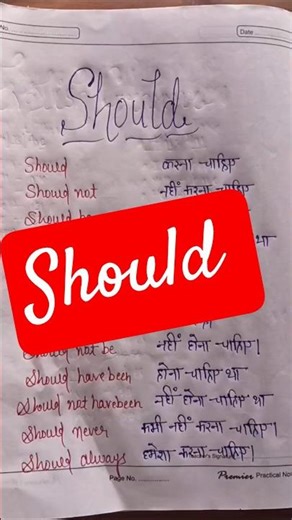 No.
Date
Should
Should करना चाहिए
Should not नहीं करना चाहिए
Should be
था
Should
not be नहीं होना चाहिए।
Should have been होना चाहिए था
Should not have been नहीं होना चाहिए था
Should never कभी नहीं करना चाहिए।
Should always हमेशा करना चाहिए।
Page No.
Premier Practical No